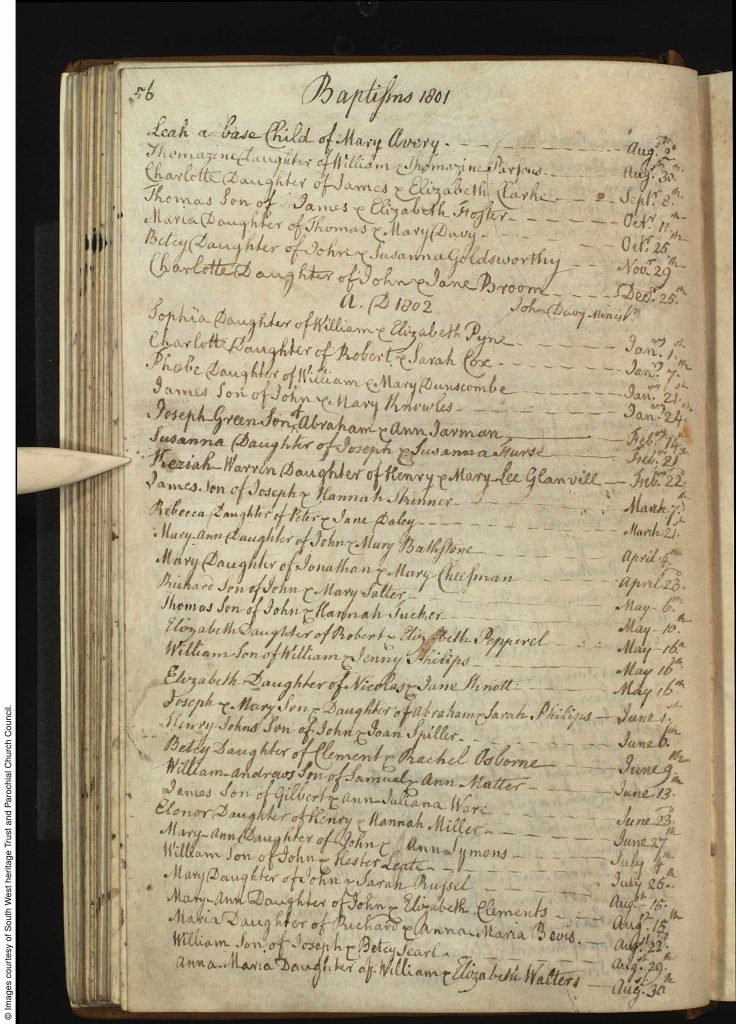 56
Baptiſms 1801
Leah a base Child of Mary Avery - Augst 9th
Thomazine Daughter of William & Thomazine Parsons - Augst 30th
Charlotte Daughter of James & Elizabeth Clarke - Septr 8th
Thomas Son of James & Elizabeth Foſter - Octr 11th
Maria Daughter of Thomas & Mary Davy - Octr 25th
Betcy Daughter of John & Susanna Goldsworthy - Novr 29th
Charlotte Daughter of John & Jane Broom - Decr 25th
A. D 1802 John Davy Ministr
Sophia Daughter of William & Elizabeth Pyne - Janry 1st
Charlotte Daughter of Robert & Sarah Cox - Janry 7th
Phœbe Daughter of William & Mary Dunscombe - Janry 21st
James Son of John & Mary Knowles - Janry 24th
Joseph Green Son of Abraham & Ann Jarman - Febry 14th
Susanna Daughter of Joseph & Susanna Hurse - Febry 21st
Keziah Warren Daughter of Henry & Mary Lee Glanvill - Febry 22d
James Son of Joseph & Hannah Skinner - March 7th
Rebecca Daughter of Peter & Jane Daley - March 21st
Mary-Ann Daughter of John & Mary Bathstone - April 4th
Mary Daughter of Jonathan & Mary Cheeſman - April 23d
Richard Son of John & Mary Salter - May 6th
Thomas Son of John & Hannah Tucker - May 10th
Elizabeth Daughter of Robert & Elizabeth Pepperel - May 16th
William Son of William & Jenny Philips - May 16th
Elizabeth Daughter of Nicolas & Jane Knott - May 16th
Joseph & Mary Son & Daughter of Abraham & Sarah Philips - June 1st
Henry Johns Son of John & Joan Spiller - June 6th
Betcy Daughter of Clement & Rachel Osborne - June 9th
William Andrews Son of Samuel & Ann Matter - June 13th
James Son of Gilbert & Ann Juliana Ware - June 23d
Elonor Daughter of Henry & Hannah Miller - June 27th
Mary-Ann Daughter of John & Ann Symons - July 4th
William Son of John & Hester Leat - July 25th
Mary Daughter of John & Sarah Ruſsel - Augst 15th
Mary-Ann Daughter of John & Elizabeth Clements - Augst 15th
Maria Daughter of Richard & Anna-Maria Bevis - Augst 22d
William Son of Joseph & Betcy Searl - Augst 29th
Anna-Maria Daughter of William & Elizabeth Walters - Augst 30th
© Images courtesy of South West heritage Trust and Parochial Church Council.